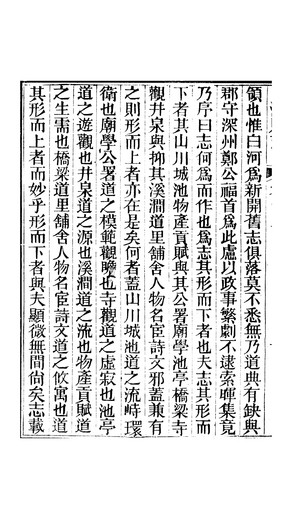 領也惟白河爲新開舊志俱落莫不悉無乃道典有缺與
郡守深州鄭公福首爲此慮以政事繁劇不逮索暉集竟
乃序曰志何爲而作也爲志其形而下者也夫志其形而
下者其山川城池物產貢賦與其公署廟學池亭橋梁寺
觀井泉與抑其溪澗道里舖舍人物名宦詩文邪蓋兼有
之則形而上者亦在是矣何者蓋山川城池道之流峙環
衛也廟學公署道之模範觀瞻也寺觀道之虛寂也池亭
道之遊觀也井泉道之源也溪澗道之流也物產貢賦道
之生需也橋梁道里舖舍人物名宦詩文道之攸寓也道
其形而上者而妙乎形而下者與夫顯微無間尙矣志載